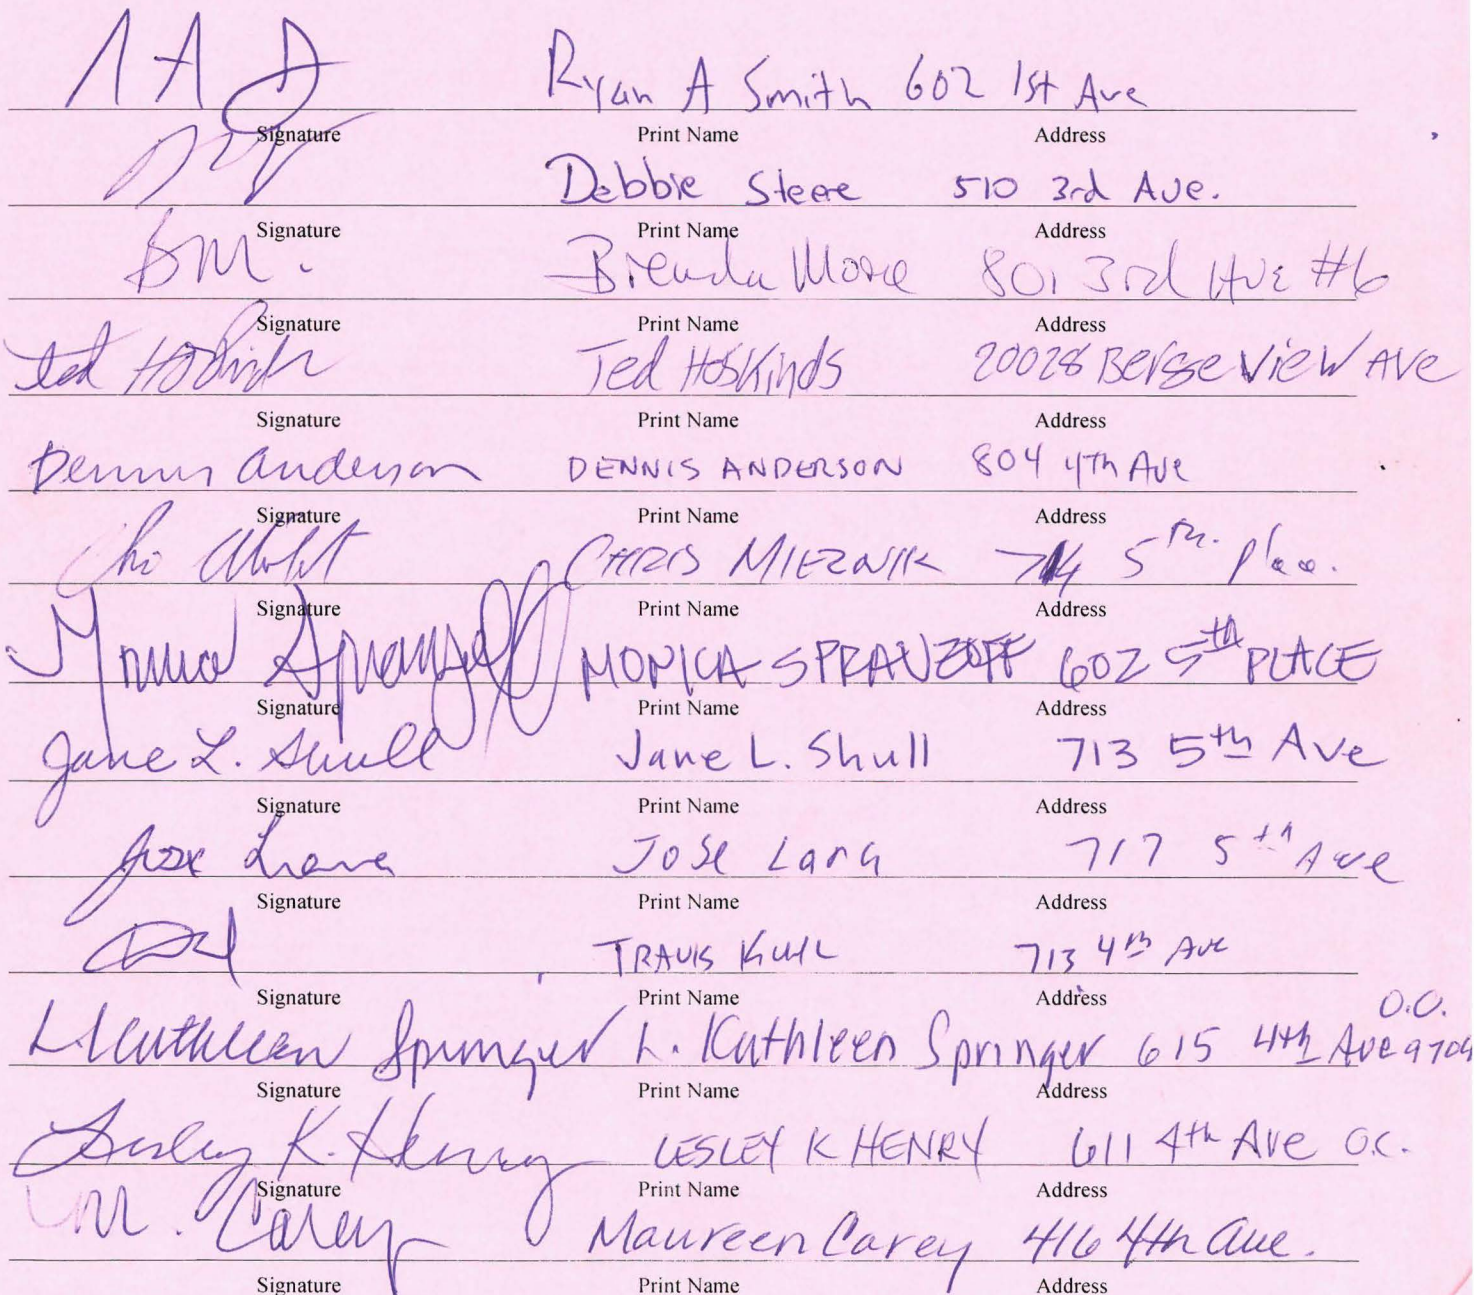 Ryan A Smith 602 1st Ave
Signature Print Name Address
Debbie Steere 510 3rd Ave.
Signature Print Name Address
BM. Brenda More 801 3rd Ave #6
Signature Print Name Address
Ted Hoskinds Ted Hoskinds 20028 Berge View Ave
Signature Print Name Address
Dennis Anderson DENNIS ANDERSON 804 4th Ave
Signature Print Name Address
CHRIS MIEZNIK 714 5th
Signature Print Name Address
MONICA 602 5th PLACE
Signature Print Name Address
Jane L. Shull Jane L. Shull 713 5th Ave
Signature Print Name Address
Jose Lara Jose Lara 717 5th Ave
Signature Print Name Address
TRAVIS KUHL 713 4th Ave
Signature Print Name Address
L. Kathleen Springer L. Kathleen Springer 615 4th Ave O.C. 9704
Signature Print Name Address
Lesley K. Henry LESLEY K HENRY 611 4th Ave O.C.
Signature Print Name Address
M. Carey Maureen Carey 416 4th Ave.
Signature Print Name Address